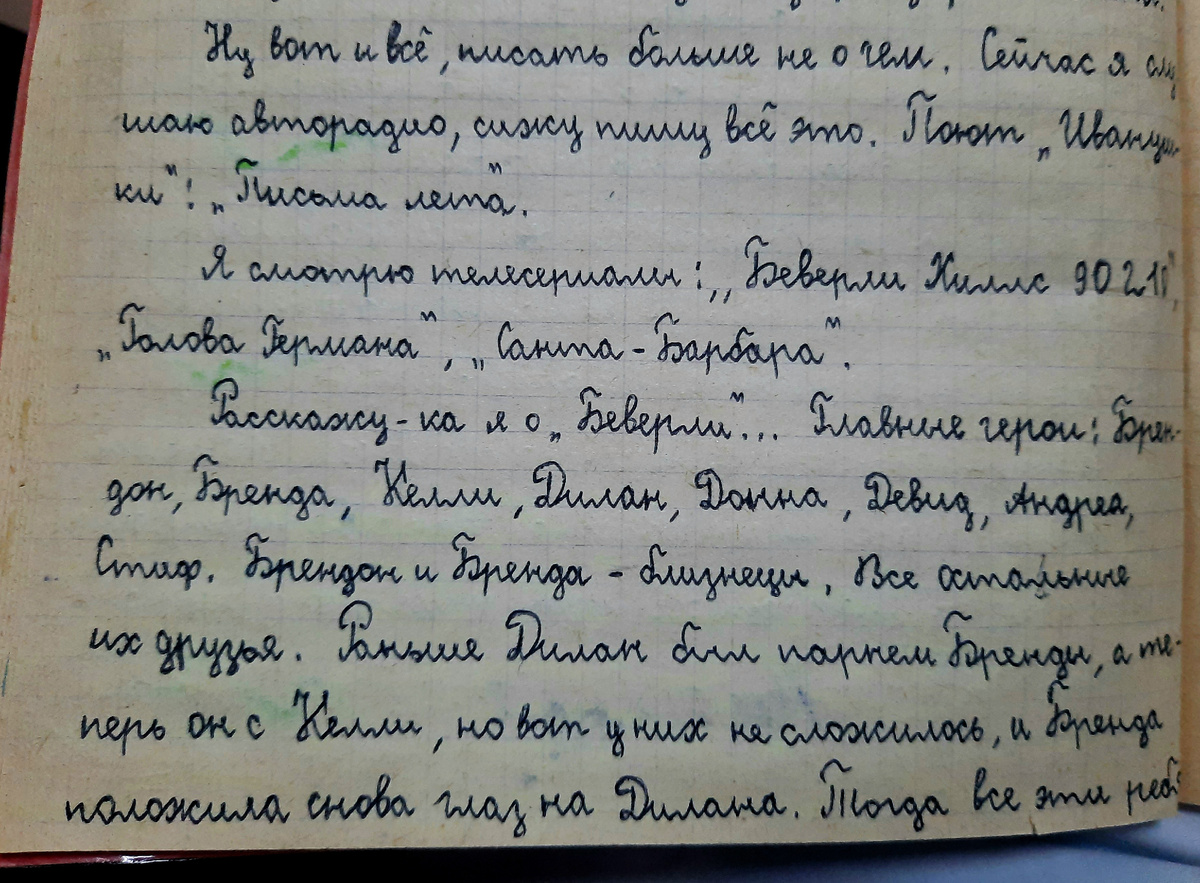 Ну вот и всё, писать больше не о чем. Сейчас я слу
шаю авторадио, сижу пишу всё это. Поют „Ивануш-
ки": „Письма лета".
Я смотрю телесериалы: „Беверли Хиллс 90210",
„Голова Германа", „Санта-Барбара".
Расскажу-ка я о „Беверли"... Главные герои: Брен-
дон, Бренда, Келли, Дилан, Донна, Девид, Андреа,
Стиф. Брендон и Бренда - близнецы. Все остальные
их друзья. Раньше Дилан был парнем Бренды, а те-
перь он с Келли, но вот у них не сложилось, и Бренда
положила снова глаз на Дилана. Тогда все эти ребя